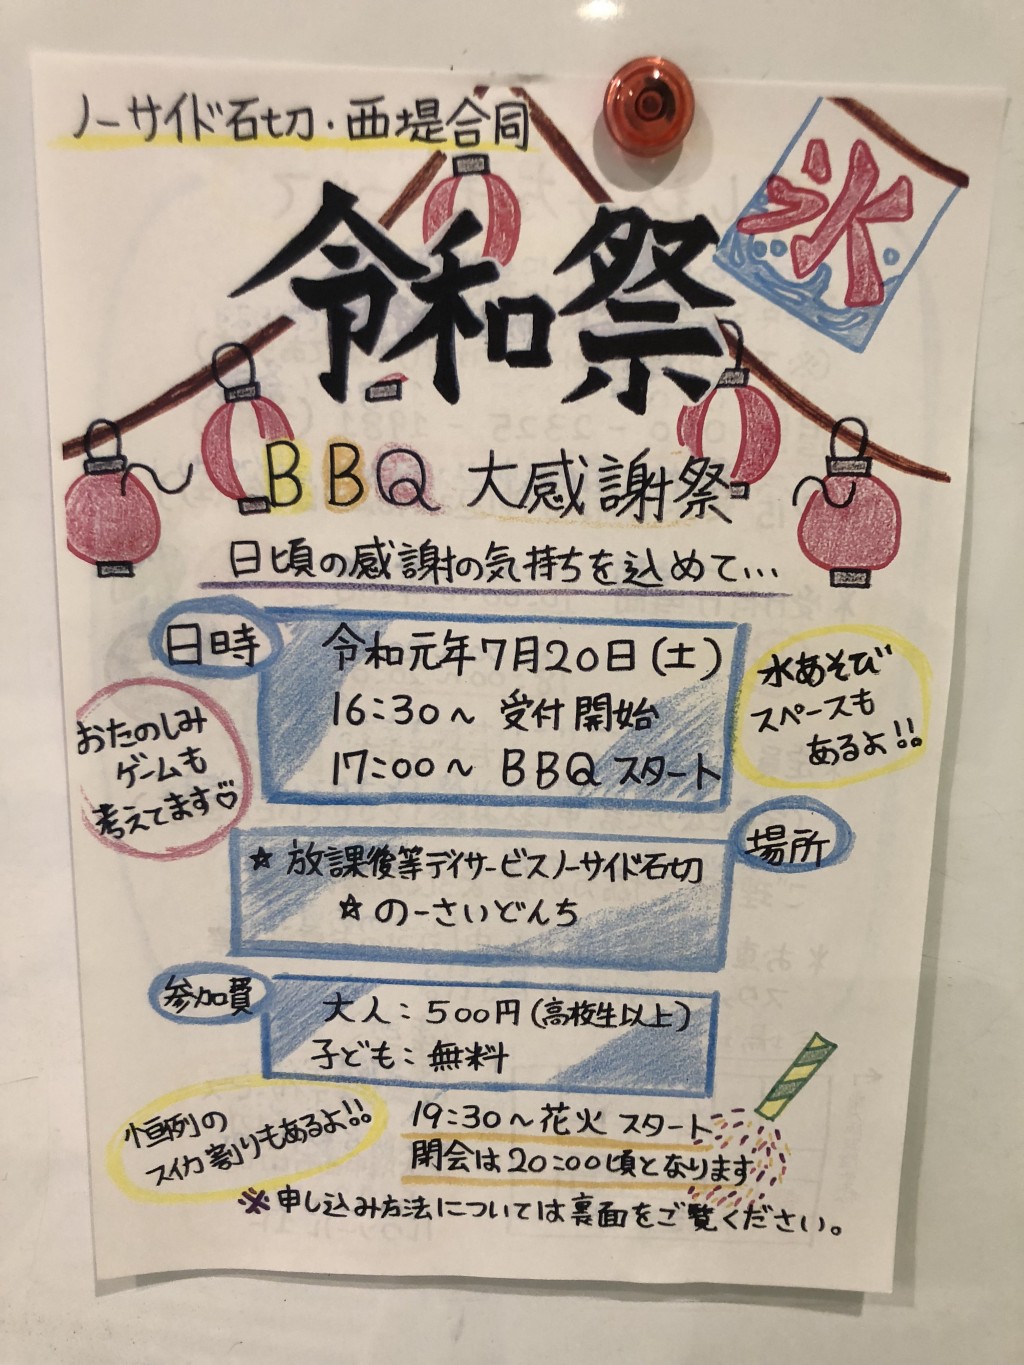 ノーサイド石切・西堤合同
氷
令和祭
BBQ 大感謝祭
日頃の感謝の気持ちを込めて...
日時
令和元年7月20日(土)
16:30～ 受付開始
17:00～ BBQ スタート
水あそび
スペースも
あるよ!!
おたのしみ
ゲームも
考えてます♡
場所
☆ 放課後等デイサービスノーサイド石切
☆ のーさいどんち
参加費
大人：500円(高校生以上)
子ども：無料
恒例の
スイカ割りもあるよ!!
19:30～花火 スタート
閉会は20:00頃となります
※申し込み方法については裏面をご覧ください。